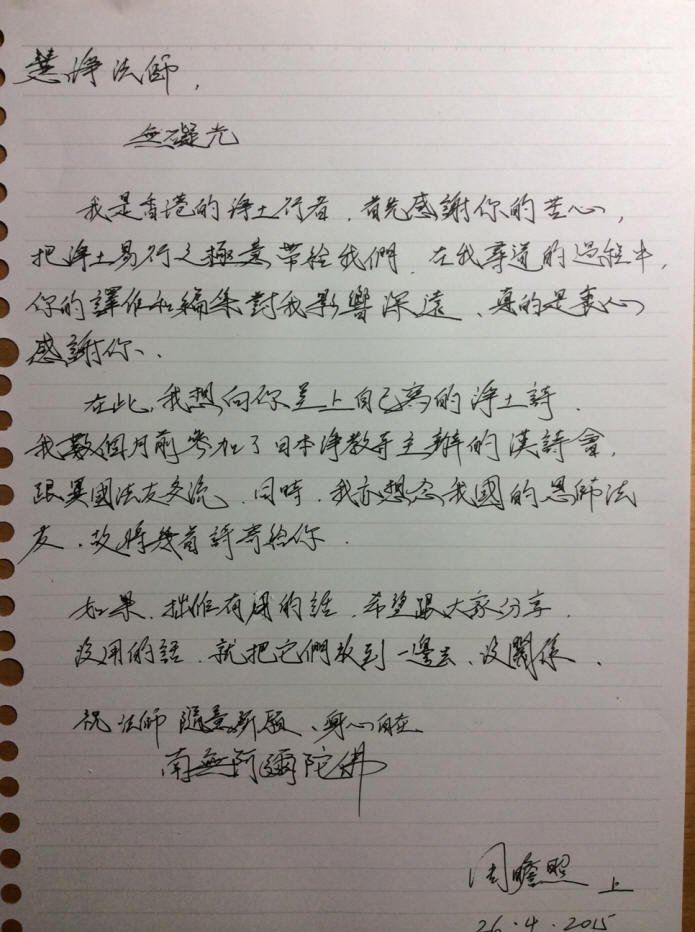 慧淨法師,
無礙光
我是香港的淨土行者,首先感謝你的苦心,
把淨土易行之極意帶給我們,在我尋道的過程中,
你的譯作和編集對我影響深遠、真的是衷心
感謝你、
在此,我想向你呈上自己寫的淨土詩.
我數個月前參加了日本淨教寺主辦的漢詩會,
跟異國法友交流.同時,我亦想念我國的恩師法
友.故將幾首詩寄給你.
如果,拙作有用的話,希望跟大家分享.
沒用的話,就把它們放到一邊去、沒關係、
祝法師 隨意所願、身心自在
南無阿彌陀佛
周瞻照 上
26.4.2015